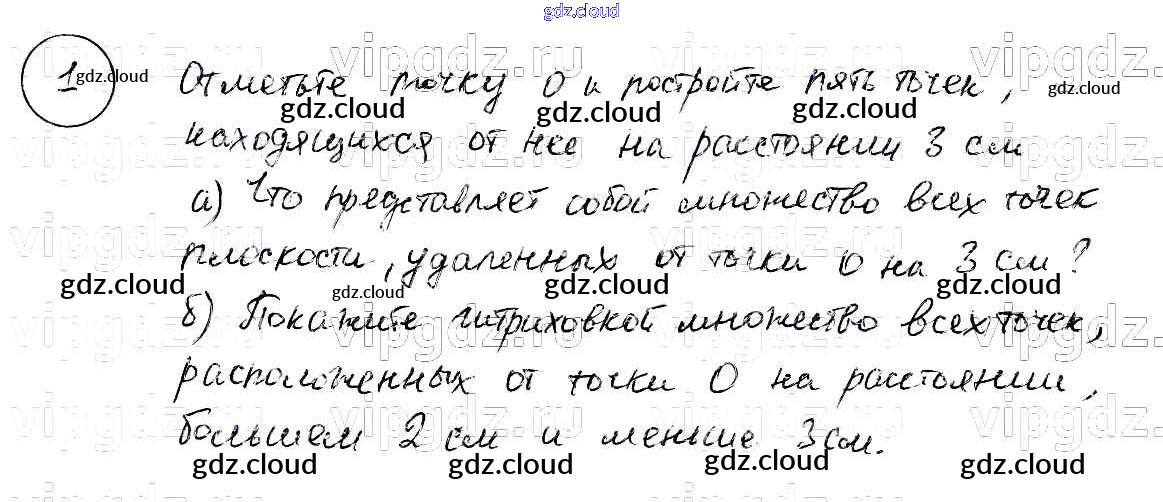 gdz.cloud
1 gdz.cloud Отметьте точку O и постройте пять точек, gdz.cloud
gdz.cloud gdz.cloud gdz.cloud
находящихся от нее на расстоянии 3 см
а) Что представляет собой множество всех точек
плоскости, удаленных от точки O на 3 см?
gdz.cloud gdz.cloud gdz.cloud gdz.cloud
б) Покажите штриховкой множество всех точек,
расположенных от точки O на расстоянии,
большем 2 см и меньше 3 см.
gdz.cloud gdz.cloud gdz.cloud
vipgdz.ru vipgdz.ru vipgdz.ru